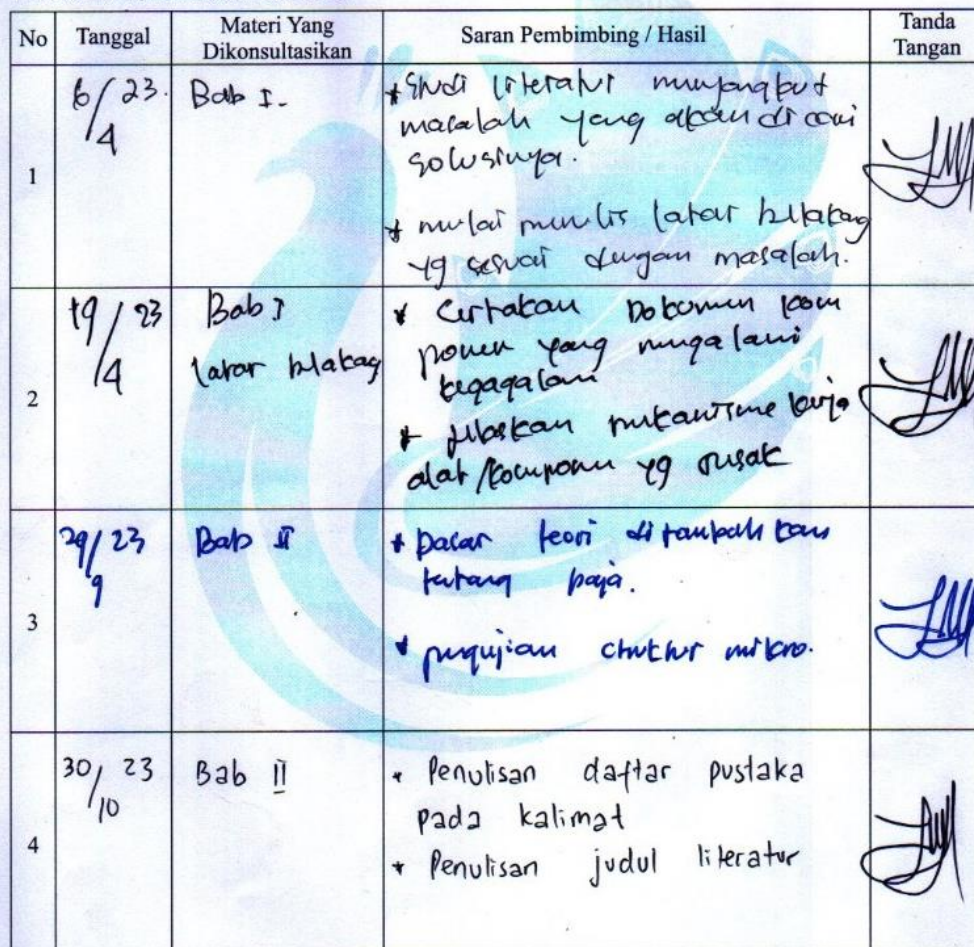 No Tanggal Materi Yang Dikonsultasikan Saran Pembimbing / Hasil Tanda Tangan
1
6/4 23.
Bab I.
* Studi literatur menyangkut
masalah yang akan di cari
solusinya.
* mulai menulis latar belakang
yg sesuai dengan masalah.
2
19/4 23
Bab I
latar blakag
* Certakan Dokumen kom
ponen yang mengalami
kegagalan
* jelaskan mekanisme kerja
alat/komponen yg rusak
3
29/9 23
Bab II
* Dasar teori ditambahkan
tentang baja.
* pengujian struktur mikro.
4
30/10 23
Bab II
* Penulisan daftar pustaka
pada kalimat
* Penulisan judul literatur